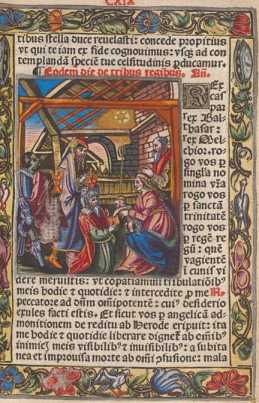 CXIX
tibus stella duce reuelasti: concede propitius
vt qui te iam ex fide cognouimus: vsq; ad con
templandā speciē tue celsitudinis ꝓducamur.
Eodem die de tribus regibus. Añ.
Rex cas
par
rex Bal
thasar:
rex Mel
chior. ro
go vos ꝑ
singĺa no
mina vr̄a
rogo vos
ꝑ sanctā
trinitatē
rogo vos
ꝑ regē re
gū: quē
vagientē
ī cunis vi
dere meruistis: vt cōpatiamini tribulatiōibꝰ
meis hodie ⁊ quotidie: ⁊ intercedite ꝓ me N.
peccatore ad dn̄m oīpotentē: cuiꝰ desiderio
exules facti estis. Et sicut vos ꝑ angelicā ad
monitionem de reditu ab Herode eripuit: ita
me hodie ⁊ quotidie liberare dignet᷑ ab oībꝰ
inimicis meis visibilibꝰ ⁊ inuisibilibꝰ: a subita
nea et improuisa morte ab oī ꝯfusione: mala